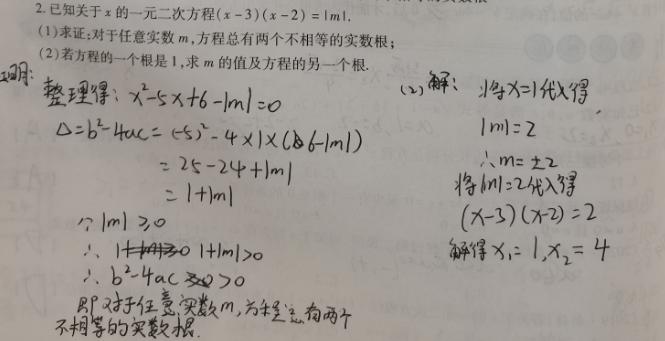 2.已知关于x的一元二次方程(x-3)(x-2)=|m|.
(1)求证:对于任意实数m,方程总有两个不相等的实数根;
(2)若方程的一个根是1,求m的值及方程的另一个根.
证明:
整理得: x²-5x+6-|m|=0
Δ=b²-4ac=(-5)²-4×1×(6-|m|)
=25-24+|m|
=1+|m|
∵|m|≥0
∴ 1+|m|>0
∴ b²-4ac>0
即对于任意实数m,方程总有两个
不相等的实数根.
(2)解: 将x=1代入得
|m|=2
∴m=±2
将|m|=2代入得
(x-3)(x-2)=2
解得x₁=1,x₂=4